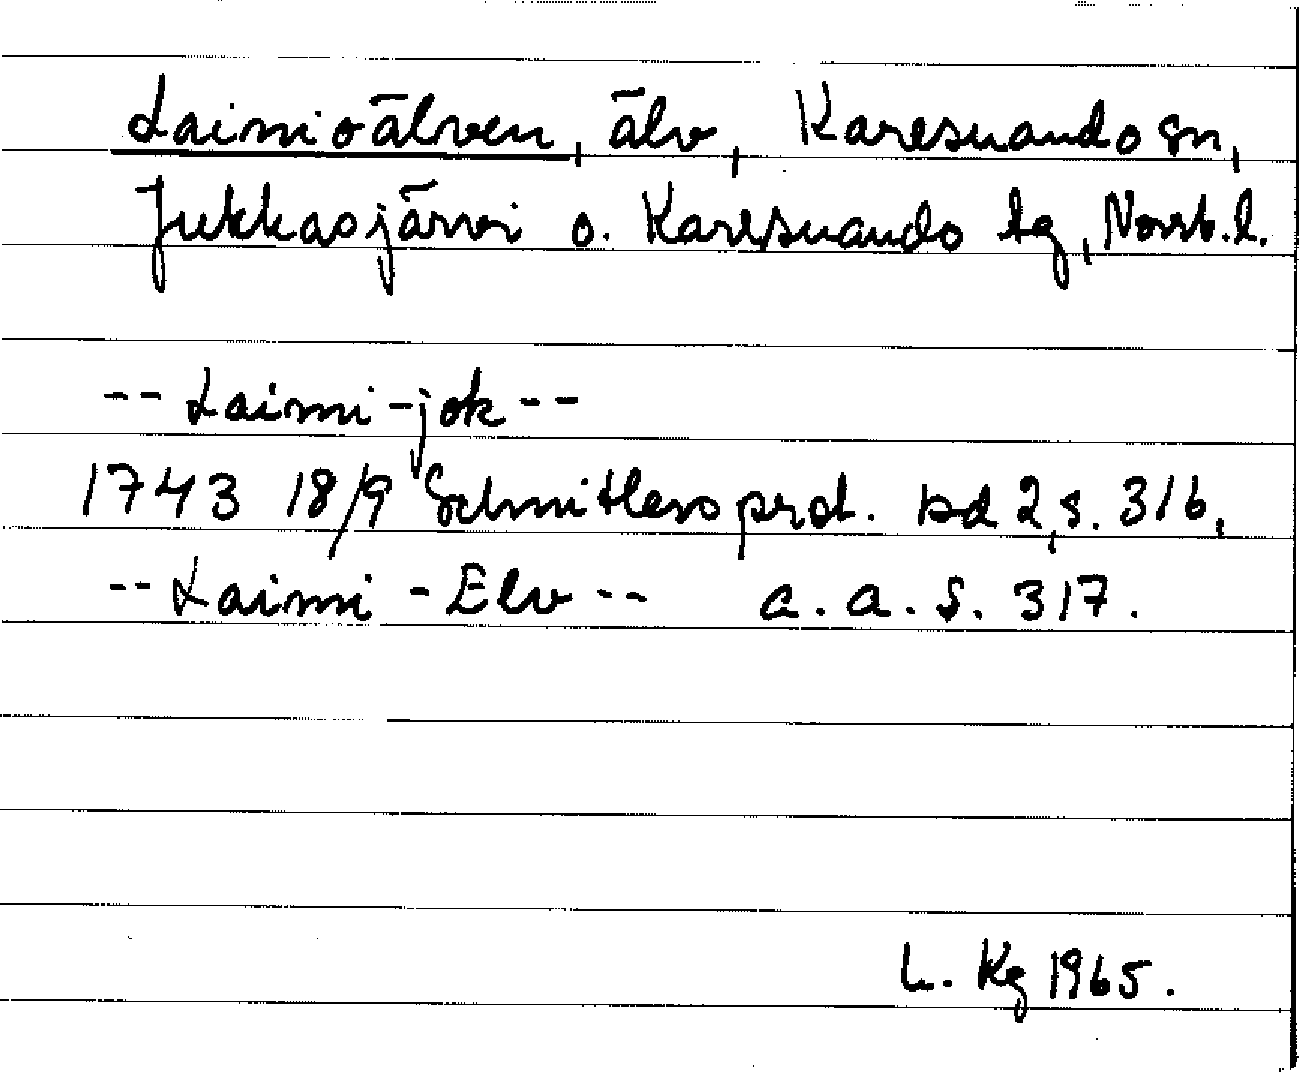 Lainioälven, älv, Karesuando sn,
Jukkasjärvi o. Karesuando tg, Norrb.l.
-- Laimi-jok --
1743 18/9 Schnitlers prot. bd 2, s. 316,
-- Laimi-Elv -- a. a. s. 317.
L. Kg 1965.